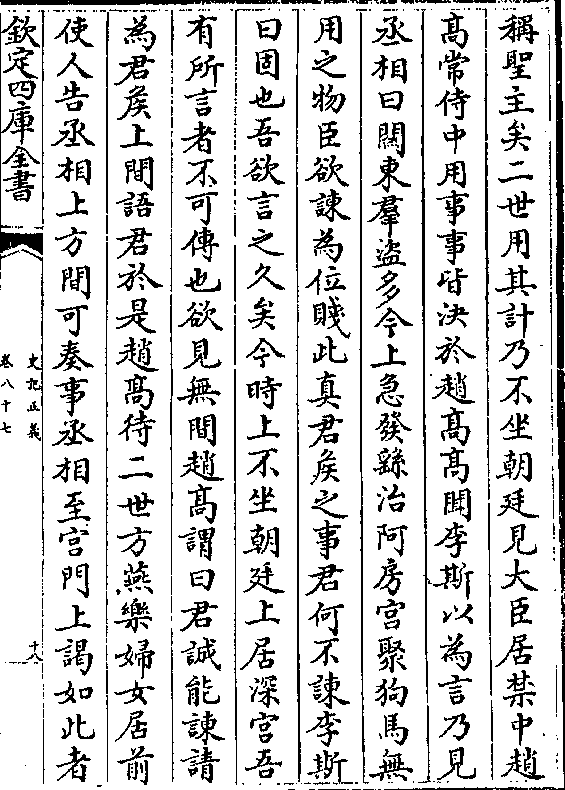 稱聖主矣二世用其計乃不坐朝廷見大臣居禁中趙
髙常侍中用事事皆決於趙髙髙聞李斯以為言乃見
丞相曰闗東羣盜多今上急發繇治阿房宫聚狗馬無
用之物臣欲諫為位賤此真君侯之事君何不諫李斯
曰固也吾欲言之久矣今時上不坐朝廷上居深宫吾
有所言者不可傳也欲見無間趙髙謂曰君誠能諫請
為君矦上間語君於是趙髙待二世方燕樂婦女居前
使人告丞相上方間可奏事丞相至宫門上謁如此者
欽定四庫全書
史記正義
卷八十七
十八